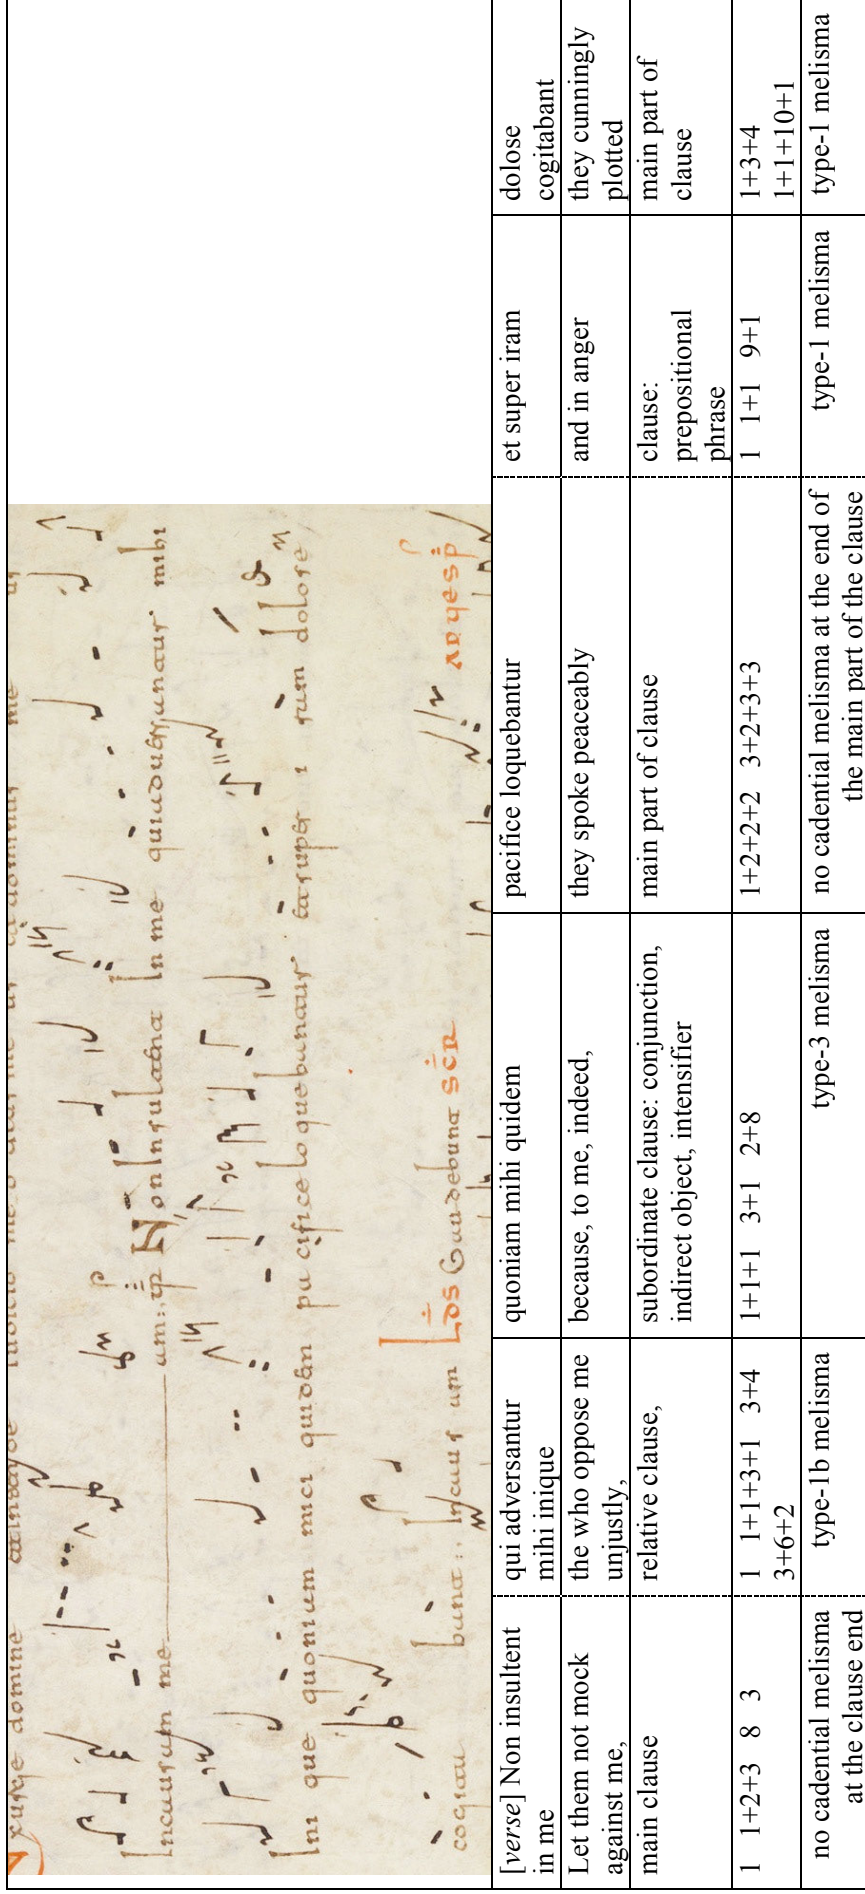 xurge domine
Incausam me am: Non Insultent In me qui aduersantur mihi
Ini que quoniam mici quidem pacifice loquebantur et super i ram dolose
cogitabant: Incausam
[verse] Non insultent in me | qui adversantur mihi inique | quoniam mihi quidem | pacifice loquebantur | et super iram | dolose cogitabant
Let them not mock against me, | the who oppose me unjustly, | because, to me, indeed, | they spoke peaceably | and in anger | they cunningly plotted
main clause | relative clause, | subordinate clause: conjunction, indirect object, intensifier | main part of clause | clause: prepositional phrase | main part of clause
1 1+2+3 8 3 | 1 1+1+3+1 3+4 3+6+2 | 1+1+1 3+1 2+8 | 1+2+2+2 3+2+3+3 | 1 1+1 9+1 | 1+3+4 1+1+10+1
no cadential melisma at the clause end | type-1b melisma | type-3 melisma | no cadential melisma at the end of the main part of the clause | type-1 melisma | type-1 melisma